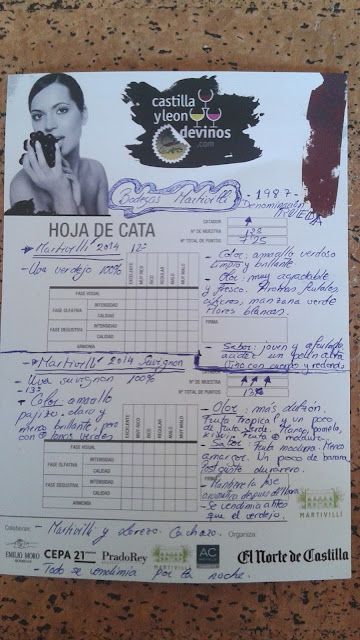 castilla
y leon
devinos
.com
Bodegas Martivillí
- 1987 -
Denominación
RUEDA
HOJA DE CATA
CATADOR
Nº DE MUESTRA
Nº TOTAL DE PUNTOS
Martivillí 2014 12º
- Uva verdejo 100%
EXCELENTE
MUY RICO
RICO
REGULAR
MALO
MUY MALO
FASE VISUAL
FASE OLFATIVA
INTENSIDAD
CALIDAD
FASE GUSTATIVA
INTENSIDAD
CALIDAD
ARMONIA
- Color: amarillo verdoso
limpio y brillante
- Olor: muy agradable
y fresco. Aromas frutales
manzana verde
flores blancas.
FIRMA
- Sabor: joven y afrutado
acidez un pelín alta
Vino con cuerpo y redondo
Martivillí 2014 Suvignon
- Uva suvignon 100%
- 13º
- Color: amarillo
pajizo. claro y
menos brillante, pero
con tonos verdes
Nº DE MUESTRA
Nº TOTAL DE PUNTOS
EXCELENTE
MUY RICO
RICO
REGULAR
MALO
MUY MALO
FASE VISUAL
FASE OLFATIVA
INTENSIDAD
CALIDAD
FASE GUSTATIVA
INTENSIDAD
CALIDAD
ARMONIA
- Olor: más
fruta tropical y un poco
de fruta verde.
kiwi. fruta madura.
- Sabor: Fruta madura. Menos
amargor. Un poco de banana
Postgusto duradero.
FIRMA
- Mantiene la fase
después de
- Se vendimia antes
que el verdejo.
MARTIVILLÍ
Colaboran:
- Martivillí y
Organiza:
EMILIO MORO
BODEGAS
CEPA 21
PradoRey
MARTIVILLÍ
AC
El Norte de Castilla
- Todo se vendimia por la noche.